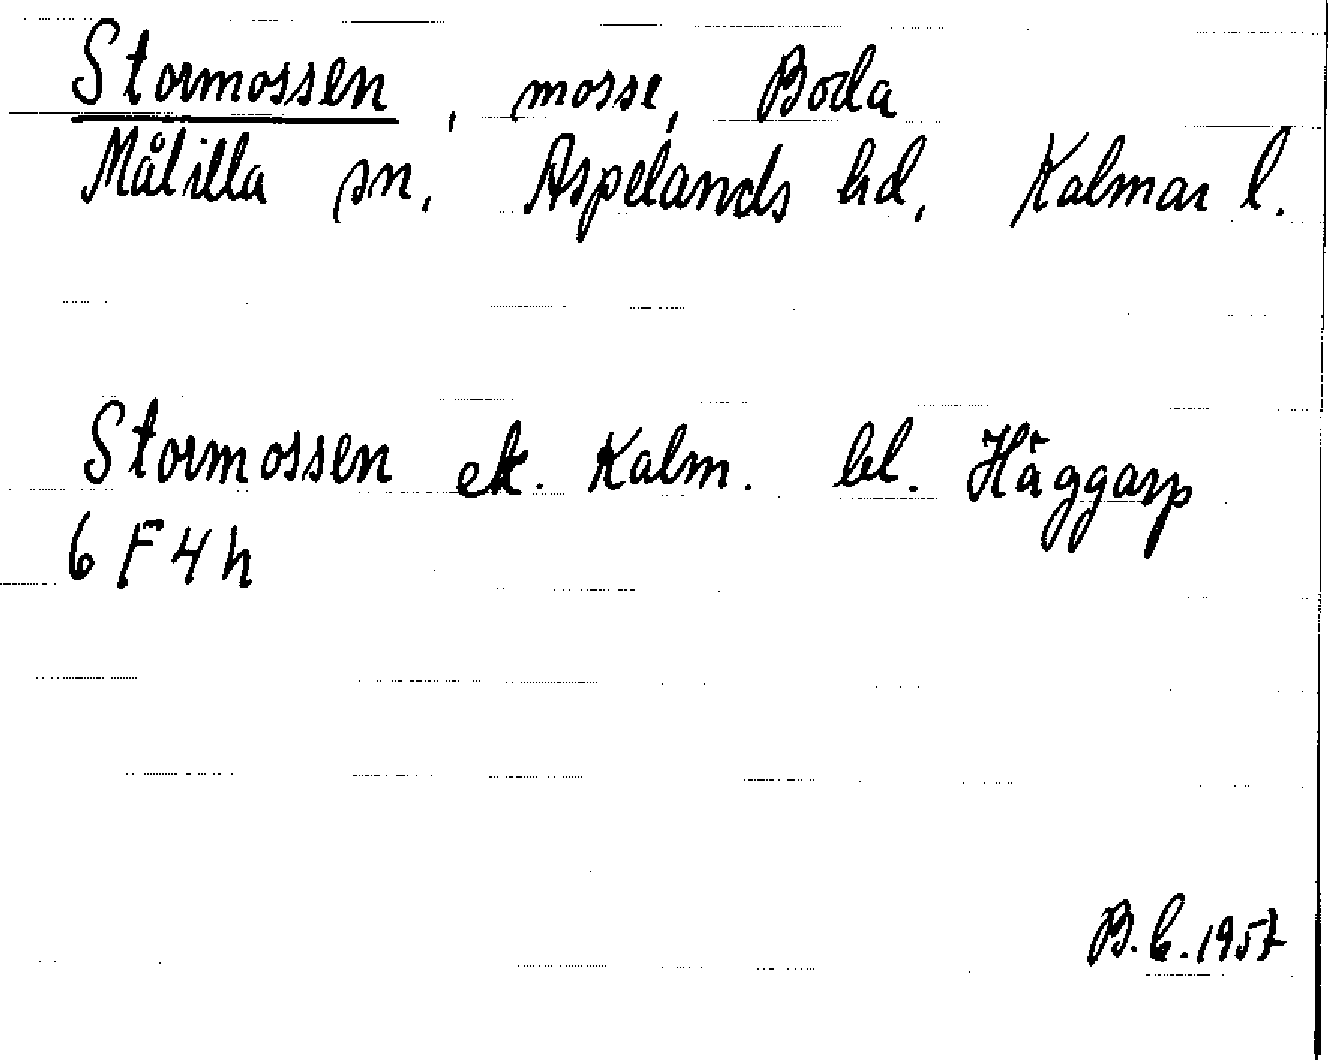 Stormossen, mosse, Boda
Målilla sn, Aspelands hd, Kalmar l.
Stormossen ek. Kalm. bl. Häggarp
6 F 4 h
B. E. 1957